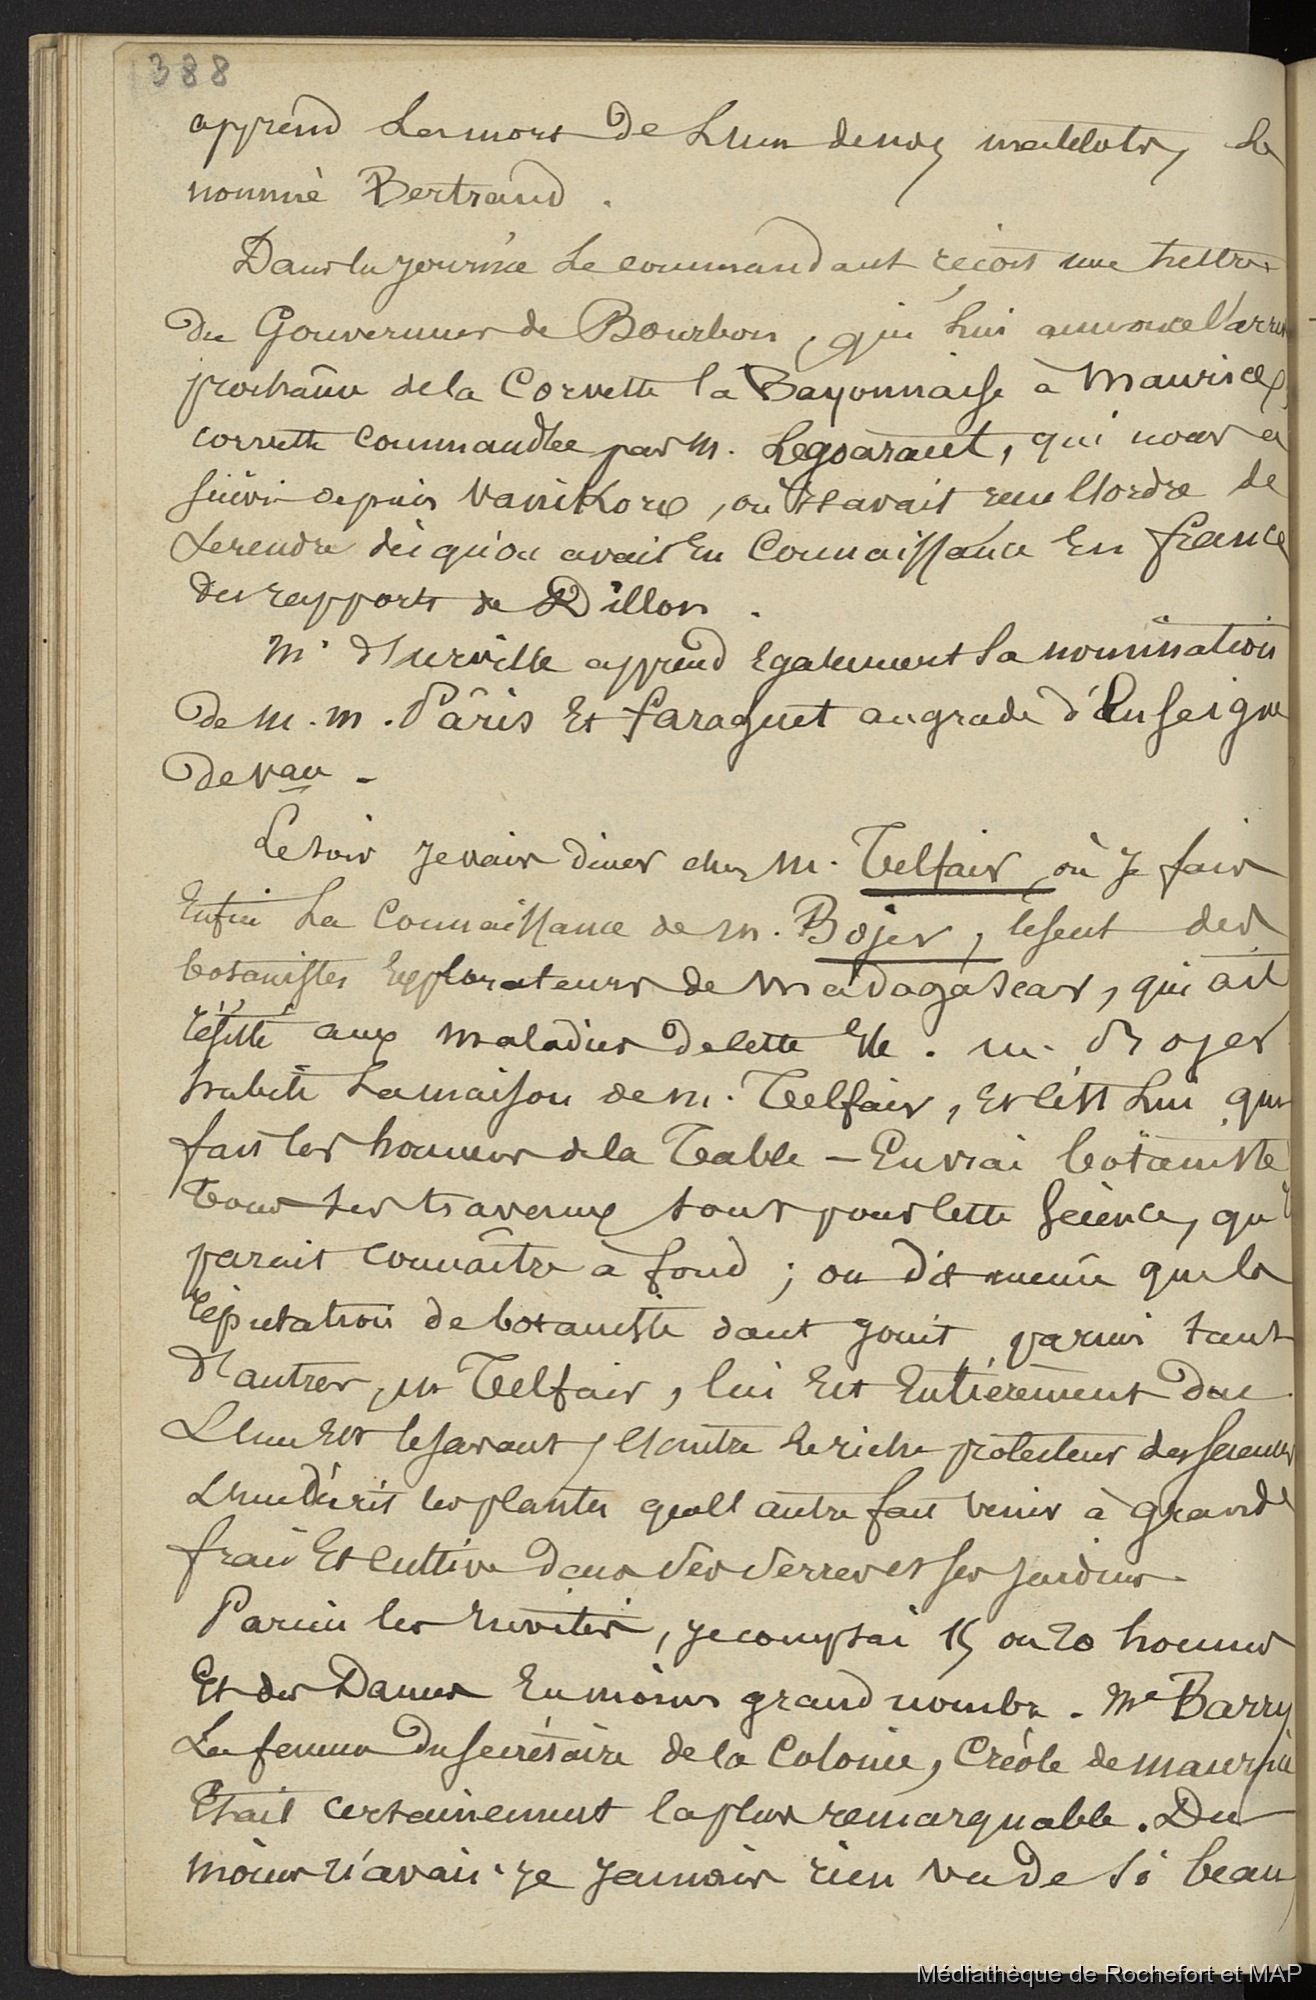 388
apprend la mort de l'un de nos matelots, le
nommé Bertrand.
Dans la journée le commandant reçoit une lettre
du Gouverneur de Bourbon, qui lui annonce l'arrivée
prochaine de la Corvette la Bayonnaise à Maurice,
corvette commandée par M. Legoarant, qui nous a
suivi depuis Vanikoro, où il avait reçu l'ordre de
se rendre dès qu'on avait eu connaissance en france
des rapports de Dillon.
Mr d'Urville apprend également la nomination
de m. m. Pâris et faraguet au grade d'Enseigne
de vau -
Le soir je vais diner chez M. Telfair, où je fais
enfin la connaissance de M. Bojer, le seul des
botanistes explorateurs de Madagascar, qui ait
résisté aux maladies de cette Ile. M. Bojer
habite la maison de M. Telfair, et c'est lui qui
fait les honneurs de la Table - En vrai botaniste
tous ses travaux sont pour cette science, qu'il
parait connaître à fond ; on dit même que la
réputation de botaniste dont jouit, parmi tant
d'autres, M Telfair, lui est entièrement due
L'un est le savant, l'autre le riche protecteur des sciences
L'un décrit les plantes que l'autre fait venir à grands
frais et cultive dans ses serres et ses jardins.
Parmi les invités, je comptai 15 ou 20 hommes
et des Dames en moins grand nombre. Me Barry
La femme du secrétaire de la Colonie, Créole de maurice
était certainement la plus remarquable. Du
moins n'avais-je jamais rien vu de si beau
Médiathèque de Rochefort et MAP